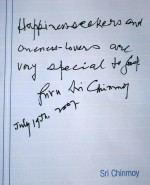 Happiness-seekers and
oneness-lovers are
very special to God.
from Sri Chinmoy
July 19th, 2007
Sri Chinmoy